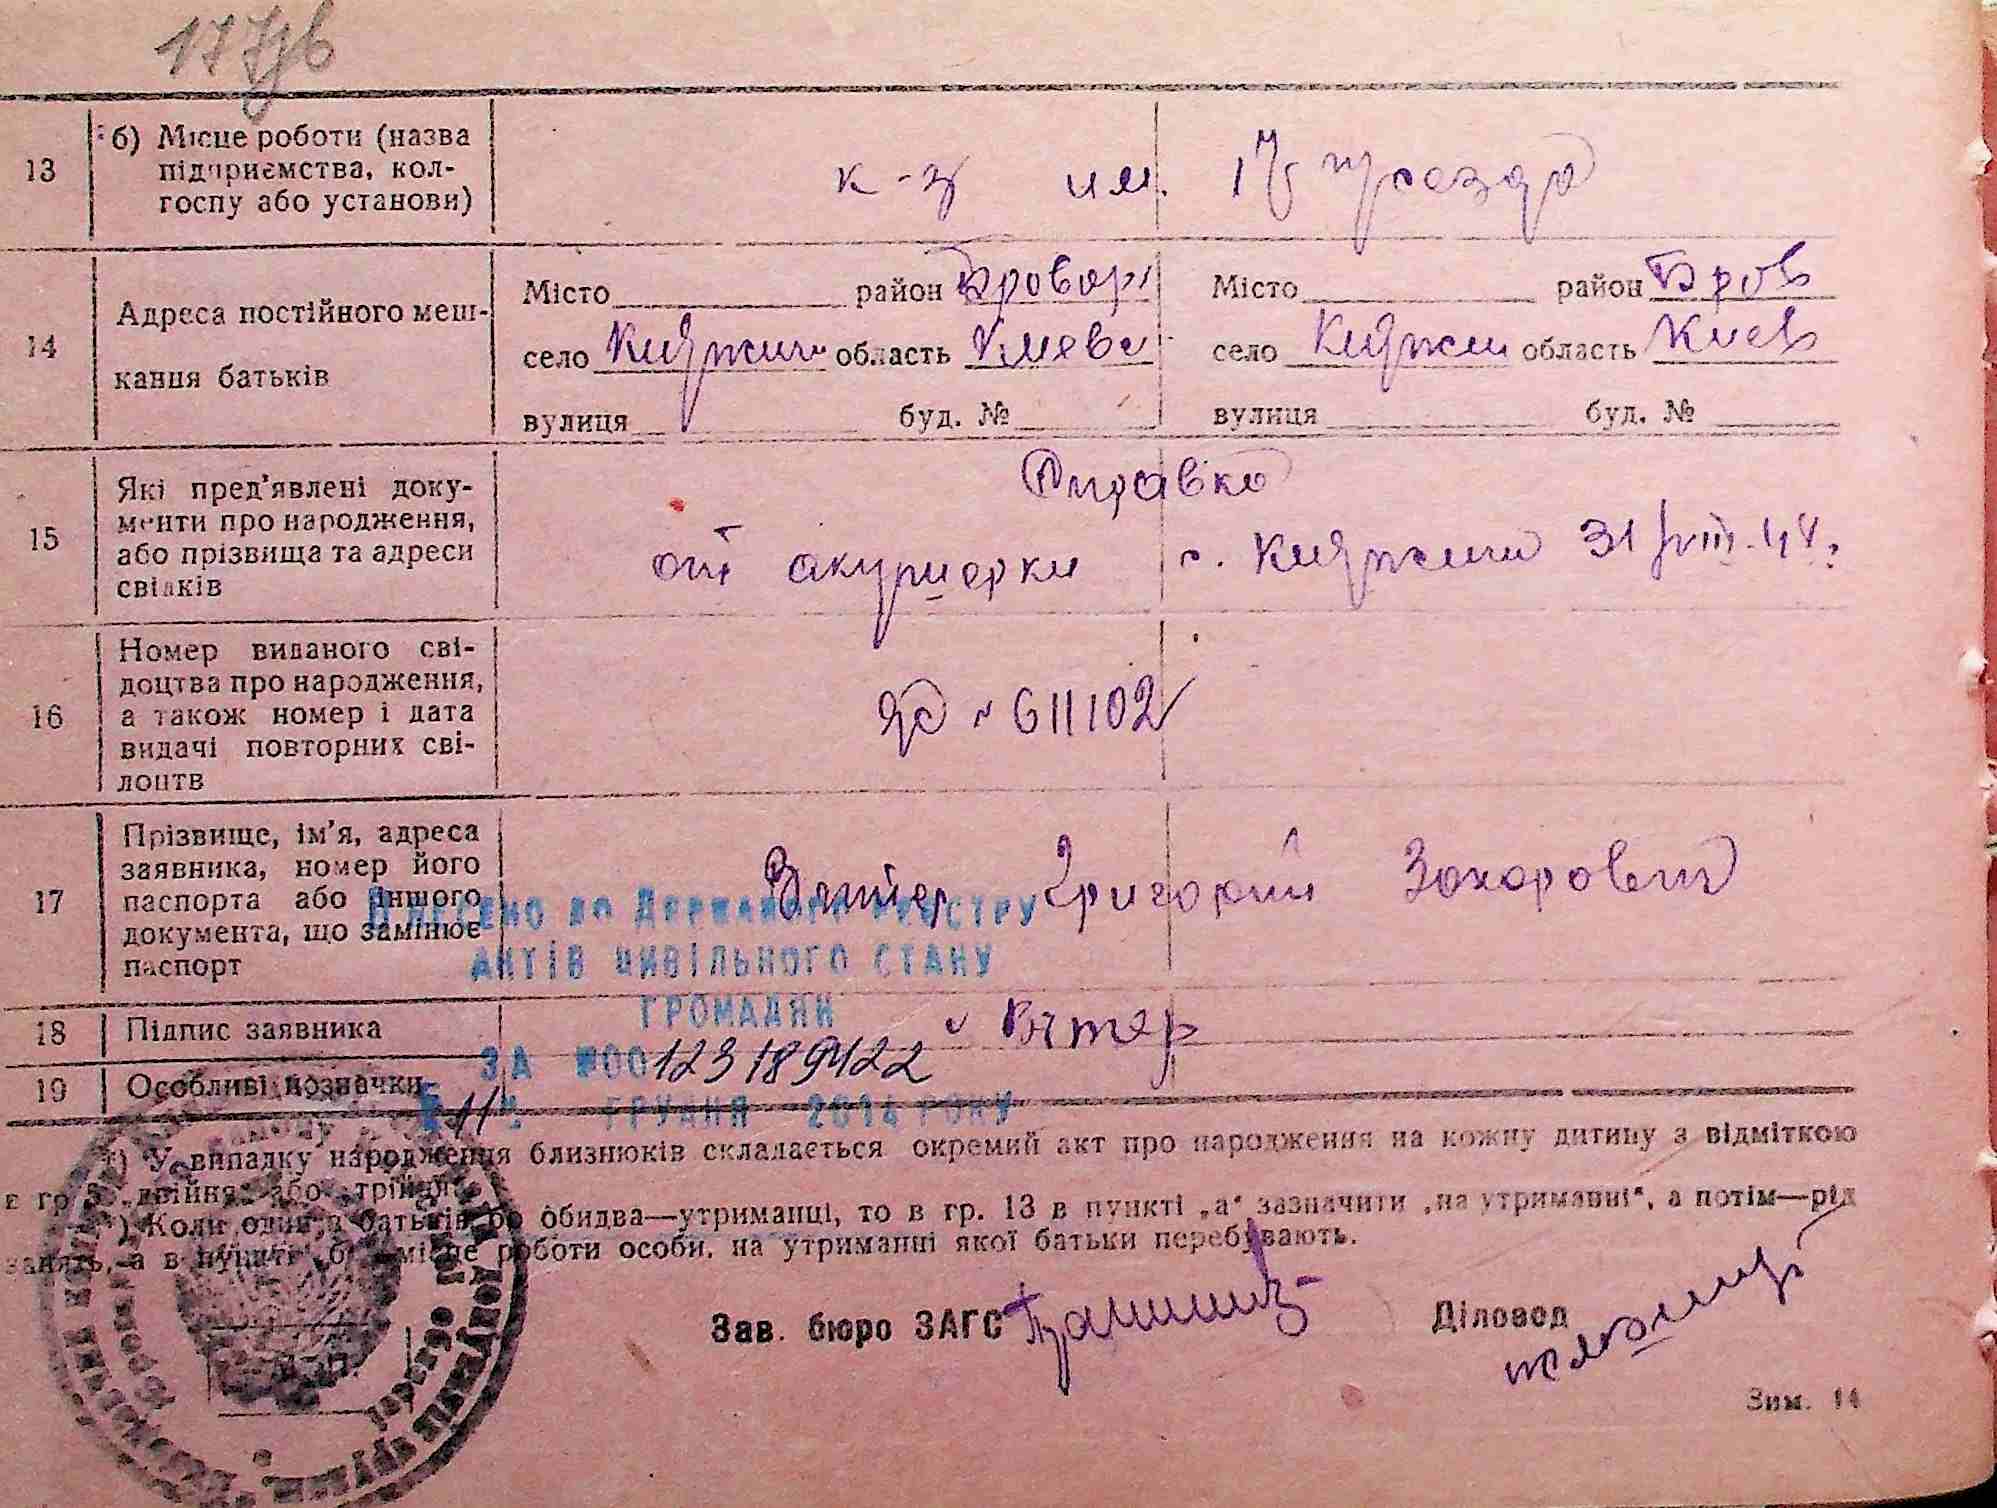 13
б) Місце роботи (назва
підприємства, кол-
госпу або установи)
к-з им. 17 
14
Адреса постійного меш-
кання батьків
Місто район Бровар
село Княжичи область Киевс
вулиця буд. №
Місто район Бров
село Княжи область Киев
вулиця буд. №
15
Які пред'явлені доку-
менти про народження,
або прізвища та адреси
свідків
Справка
от акушерки с. Княжичи 31/VIII.48.
16
Номер виданого сві-
доцтва про народження,
а також номер і дата
видачі повторних сві-
доцтв
№ 611102
17
Прізвище, ім'я, адреса
заявника, номер його
паспорта або іншого
документа, що замінює
паспорт
Григорий Захорович
ВНЕСЕНО ДО ДЕРЖАВНОГО РЕЄСТРУ
АКТІВ ЦИВІЛЬНОГО СТАНУ
ГРОМАДЯН
ЗА №00123189422
"11" ГРУДНЯ 2014 РОКУ
18
Підпис заявника
19
Особливі позначки
*) У випадку народження близнюків складається окремий акт про народження на кожну дитину з відміткою
в гр. 5 „двійня" або „трійня".
**) Коли один з батьків або обидва—утриманці, то в гр. 13 в пункті „а" зазначити „на утриманні", а потім—рід
занять, а в пункті „б"—місце роботи особи, на утриманні якої батьки перебувають.
Зав. бюро ЗАГС
Діловод
М. П.
Зим. 14